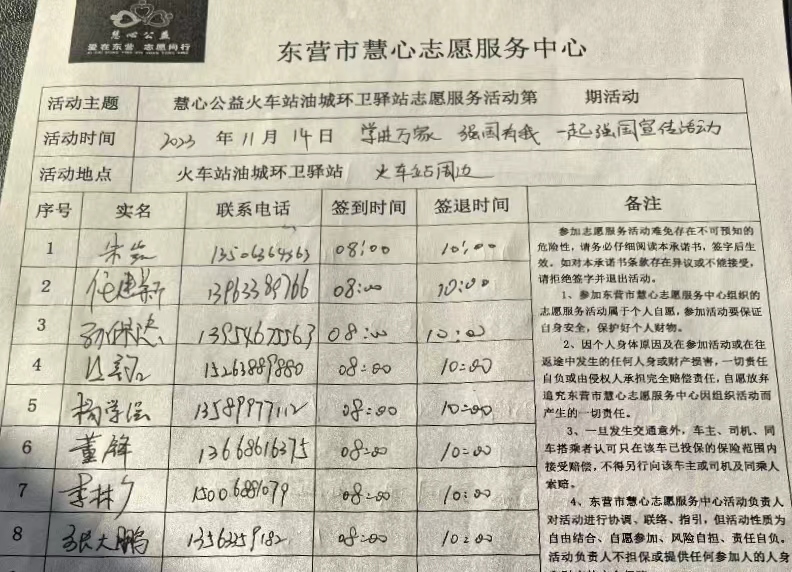 慧心公益
爱在东营 志愿同行
东营市慧心志愿服务中心
活动主题 慧心公益火车站油城环卫驿站志愿服务活动第 期活动
活动时间 2023 年 11 月 14 日 学进万家 强国有我 一起强国宣传活动
活动地点 火车站油城环卫驿站 火车站周边
序号 实名 联系电话 签到时间 签退时间 备注
1 08:00 10:00
2 任建新 13963389766 08:00 10:00
3 13954675563 08:00 10:00
4 15263889880 08:00 10:00
5 杨学 13589977112 08:00 10:00
6 董锋 13668616375 08:00 10:00
7 李林 15006881079 08:00 10:00
8 张大鹏 13562259182 08:00 10:00
参加志愿服务活动难免存在不可预知的
危险性，请务必仔细阅读本承诺书，签字后生
效。如对本承诺书条款存在异议或不能接受，
请拒绝签字并退出活动。
1、参加东营市慧心志愿服务中心组织的
志愿服务活动属于个人自愿，参加活动要保证
自身安全，保护好个人财物。
2、因个人身体原因及在参加活动或在往
返途中发生的任何人身或财产损害，一切责任
自负或由侵权人承担完全赔偿责任，自愿放弃
追究东营市慧心志愿服务中心因组织活动而
产生的一切责任。
3、一旦发生交通意外，车主、司机、同
车搭乘者认可只在该车已投保的保险范围内
接受赔偿，不得另行向该车主或司机及同乘人
索赔。
4、东营市慧心志愿服务中心活动负责人
对活动进行协调、联络、指引，但活动性质为
自由结合、自愿参加、风险自担、责任自负。
活动负责人不担保或提供任何参加人的人身